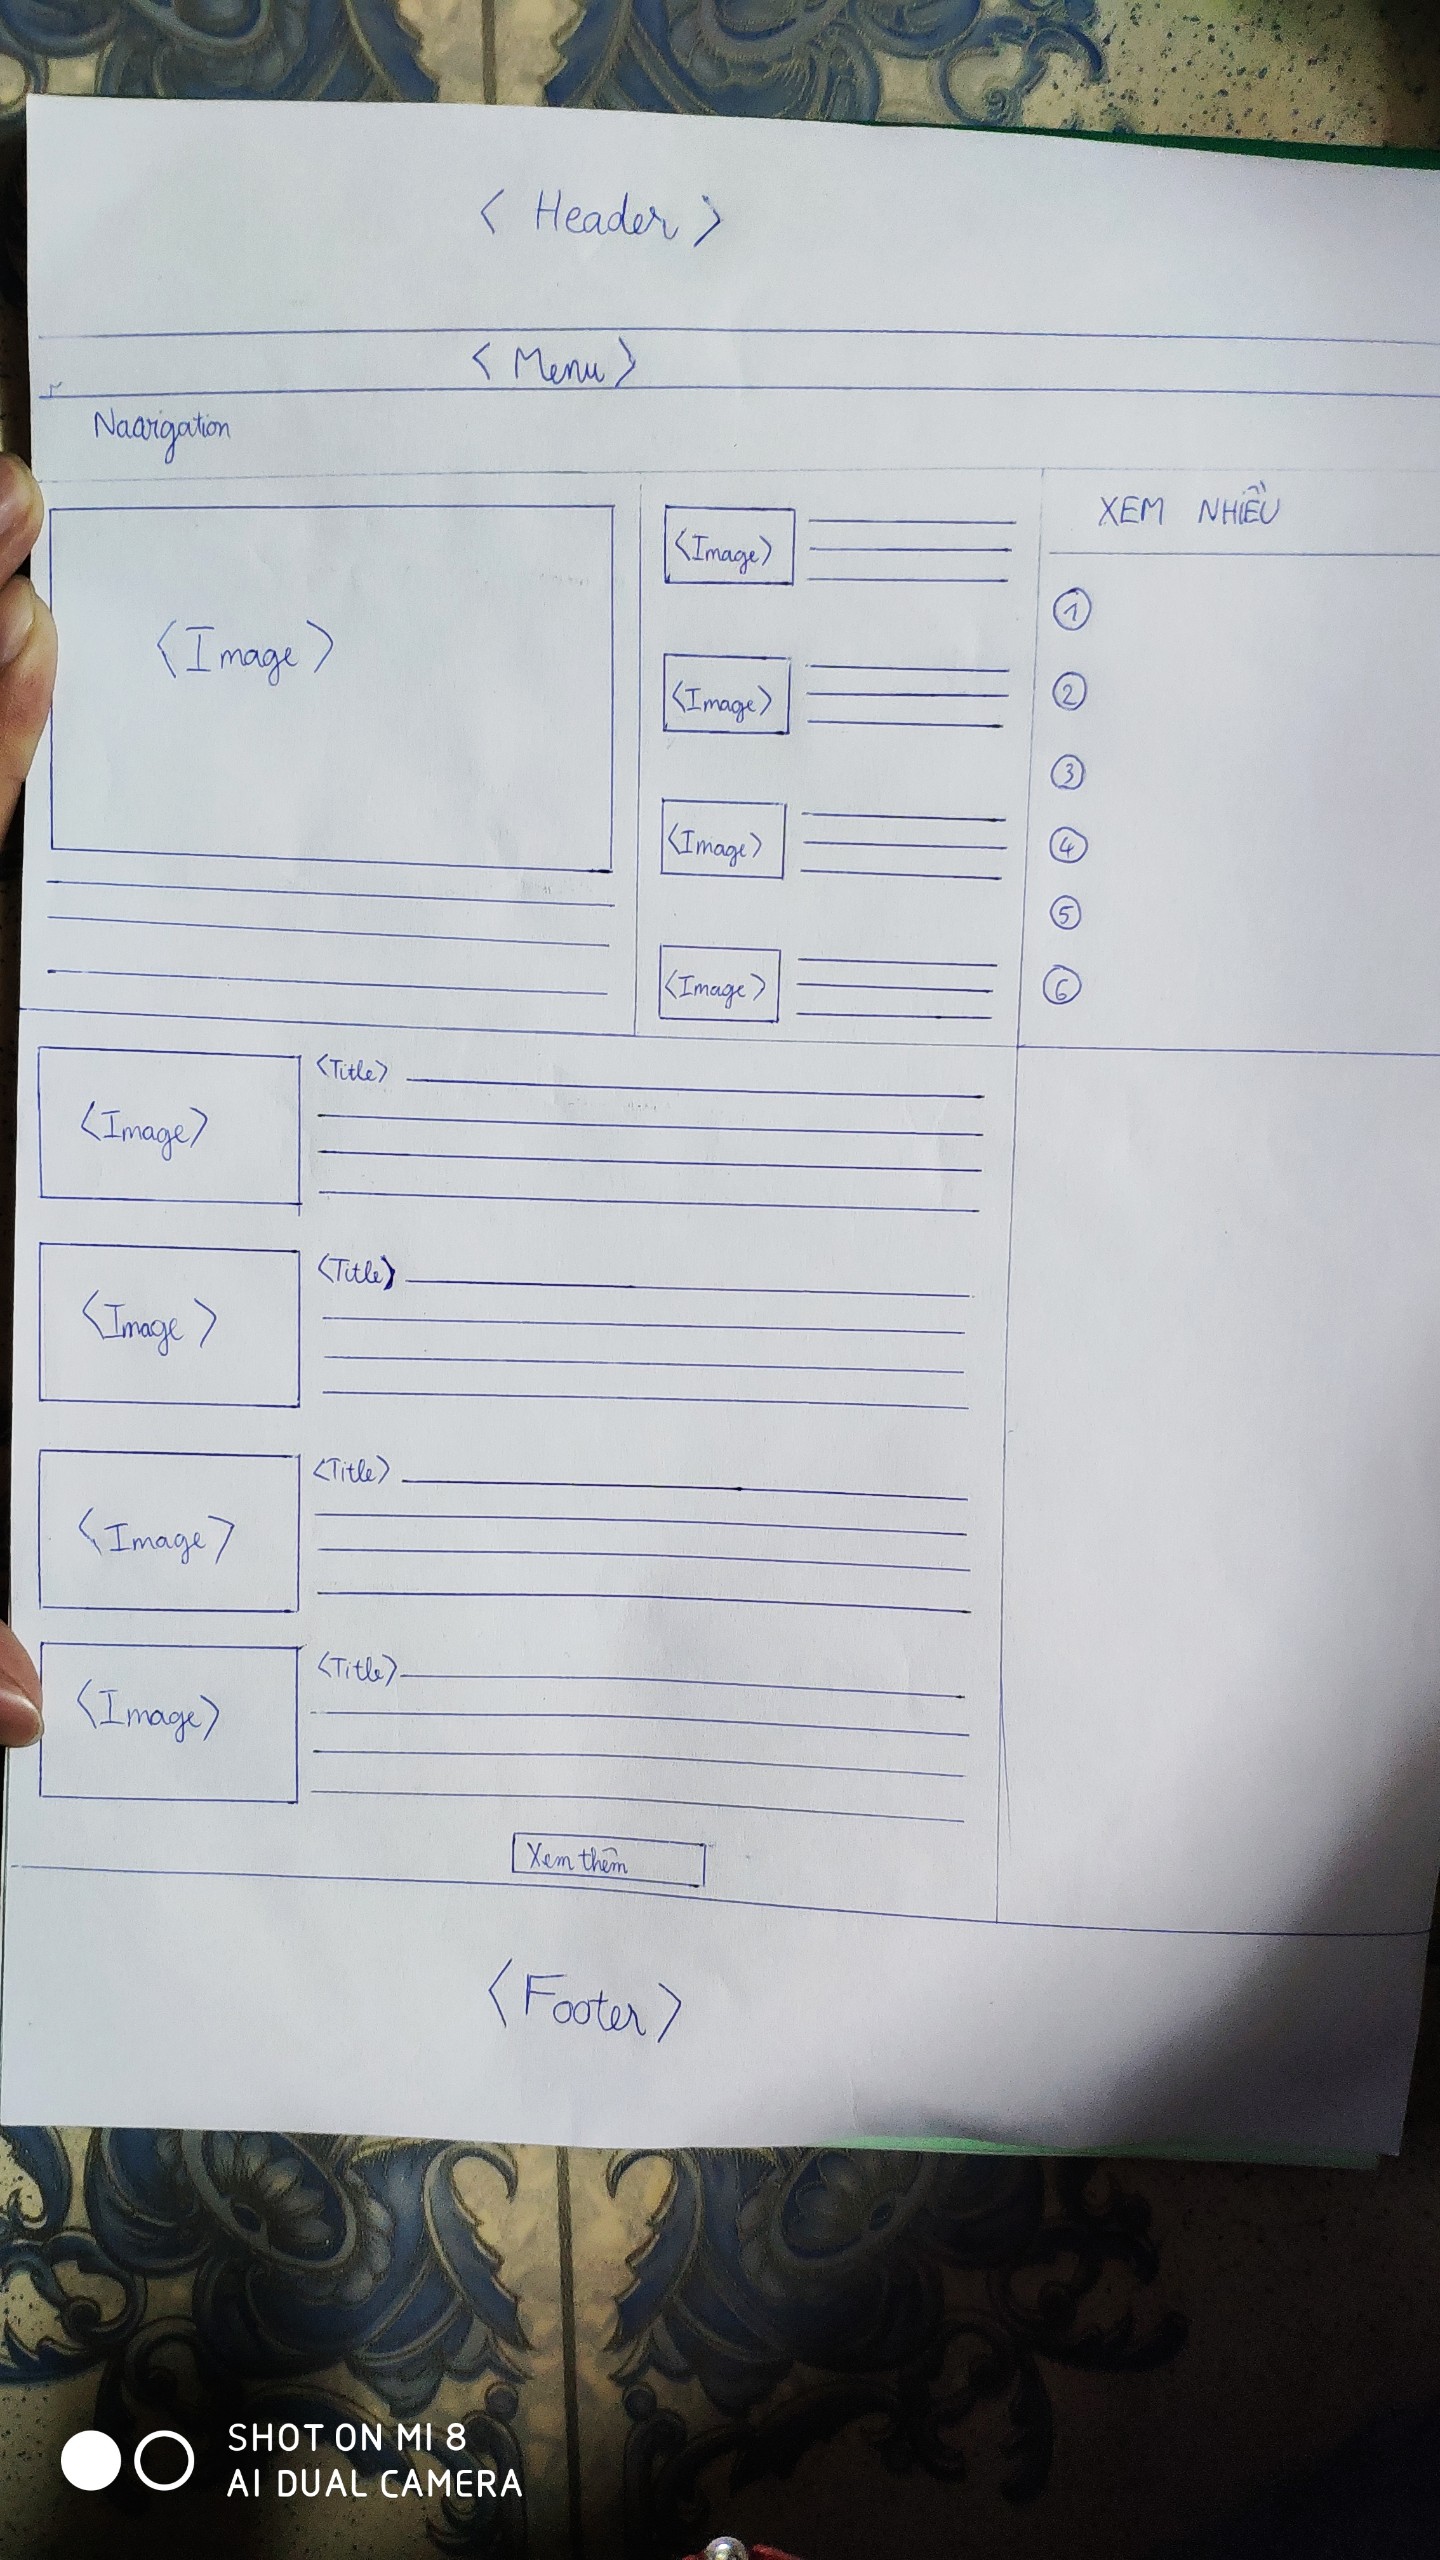 < Header >
< Menu >
Naavigation
<Image>
<Image>
<Image>
<Image>
<Image>
XEM NHIỀU
1
2
3
4
5
6
<Image>
<Title>
<Image>
<Title>
<Image>
<Title>
<Image>
<Title>
Xem thêm
<Footer>
SHOT ON MI 8
AI DUAL CAMERA